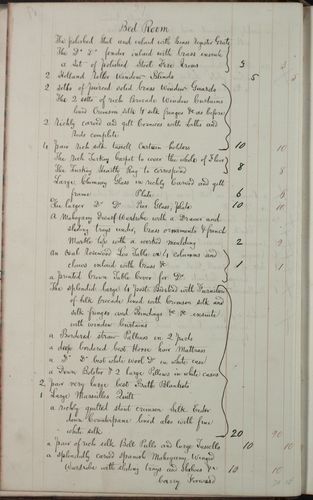 Bed Room
The polished Steel and inlaid with brass Register Grate
The Do Do fender inlaid with brass ensuite
a Set of polished Steel Fire Irons 3 3
2 Holland Roller Window Blinds 5 5
2 setts of pierced solid brass Window Guards
The 2 setts of rich Brocade Window Curtains
lined Crimson Silk & silk fringes &c as before
2 Richly carved and gilt Cornices with Laths and
Rods complete
4 pair rich silk tassell Curtain holders 10 10
The Rich Turkey Carpet to cover the whole of Floor
The Turkey Hearth Rug to correspond 8 8
Large Chimney Glass in richly Carved and gilt
frame Plate 6 6
The larger Do Do Pier Glass, plate 10 10
A Mahogany Dwarf Wardrobe with a Drawer and
sliding trays under, brass ornaments & french
Marble top with a worked moulding 2 2
An oval Rosewood Loo Table on 4 columns and
claws inlaid with Brass &c
a printed Crown Table Cover for Do 1 1
The splendid large 4 post Bedsted with Furniture
of silk brocade lined with Crimson silk and
silk fringes and Bindings &c &c ensuite
with window Curtains
a Bordered straw Palliass in 2 parts
a deep bordered best Horse hair Mattress
a Do Do best white wool Do in white case
a Down Bolster & 2 large Pillows in white cases
2 pair very large best Bath Blankets
1 Large Marseilles Quilt
a richly quilted stout crimson Silk Eider
down Counterpane lined also with fine
white silk 20 20
a pair of rich silk Bell Pulls and large Tassells 10 10
a splendidly carved Spanish Mahogany Winged
Wardrobe with sliding trays and Shelves &c 10 10
Carry Forward